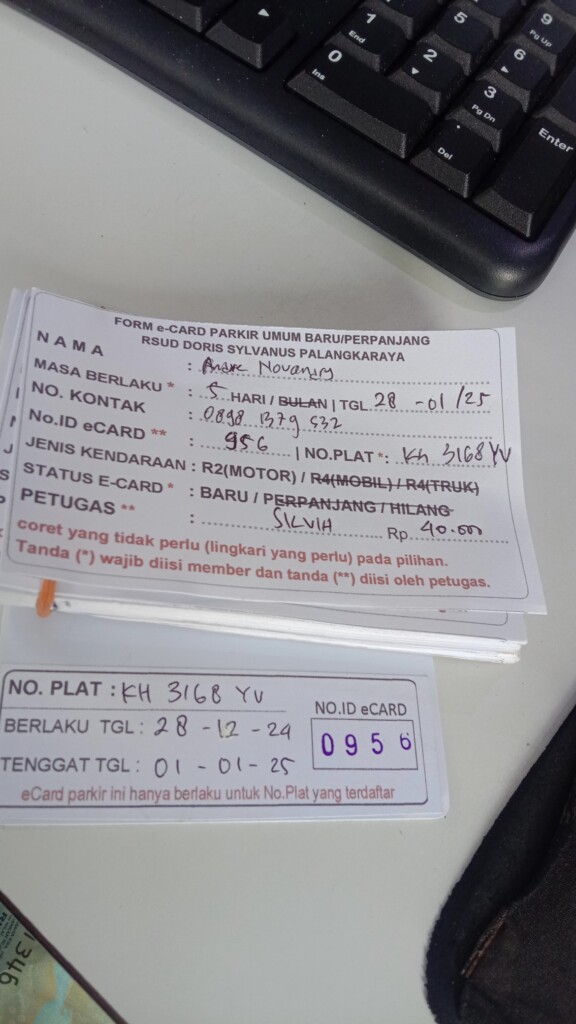 1
End
5
9
Pg Up
0
Ins
2
6
3
Pg Dn
.
Del
Enter
FORM e-CARD PARKIR UMUM BARU/PERPANJANG
RSUD DORIS SYLVANUS PALANGKARAYA
NAMA : Andre Novandry
MASA BERLAKU * : 5 HARI / BULAN | TGL 28 -01/25
NO. KONTAK : 0898 1379 532
No.ID eCARD ** : 956 | NO.PLAT *: KH 3168 YV
JENIS KENDARAAN : R2(MOTOR) / R4(MOBIL) / R4(TRUK)
STATUS E-CARD * : BARU / PERPANJANG / HILANG
PETUGAS ** : SILVIA Rp. 40.000
coret yang tidak perlu (lingkari yang perlu) pada pilihan.
Tanda (*) wajib diisi member dan tanda (**) diisi oleh petugas.
NO. PLAT : KH 3168 YV
NO.ID eCARD
BERLAKU TGL : 28 - 12 - 24
0956
TENGGAT TGL : 01 - 01 - 25
eCard parkir ini hanya berlaku untuk No.Plat yang terdaftar